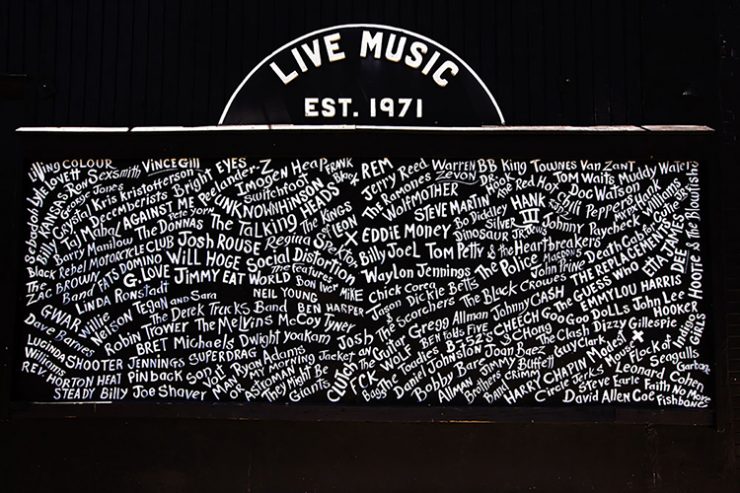 LIVE MUSIC
EST. 1971
Living COLOUR VINCE Gill BRIGHT EYES Peelander-Z Imogen Heap FRANK Black REM Jerry Reed Warren Zevon BB King Townes Van Zant
Lyle Lovett Ron Sexsmith Kris Kristofferson Switchfoot The Ramones Red Hot Chili Peppers Tom Waits Muddy Waters
Sebadoh KANSAS George Jones Decemberists Wolfmother Doc Watson
Billy Crystal AGAINST ME Pete Yorn UNKNOWNHINSON STEVE MARTIN HANK III Williams
Taj Mahal The DONNAS The Talking HEADS The Kings OF LEON EDDIE MONEY Bo Diddley Silver Johnny Paycheck
Barry Manilow JOSH ROUSE Regina Spektor Billy Joel Tom Petty & the Heartbreakers Dinosaur JR Death Cab for Cutie
Black Rebel MOTORCYCLE CLUB WILL HOGE Social Distortion The features Waylon Jennings The Police John Prine THE REPLACEMENTS ETTA JAMES DEE Hootie & the Blowfish
The ZAC BROWN Band FATS DOMINO G. LOVE JIMMY EAT WORLD Bon Iver MIKE Chick Corea The Black Crowes THE GUESS WHO
LINDA Ronstadt NEIL YOUNG BEN HARPER Jason Dickie Betts Johnny CASH EMMYLOU HARRIS
GWAR Willie Nelson Tegan and Sara The Derek Trucks Band Josh The Scorchers Goo Goo DOLLS John Lee HOOKER
Dave Barnes Robin Trower The Melvins McCoy Tyner Guitar WOLF Gregg Allman BEN Folds FIVE CHEECH & CHONG The Clash Dizzy Gillespie Indigo GIRLS
LUCINDA Williams BRET Michaels Dwight Yoakam The Toadies B-52's Joan Baez Guy Clark Modest House Flock of Seagulls
SHOOTER JENNINGS SUPERDRAG Ryan Adams MY MORNING Jacket Daniel Johnston Jimmy Buffett HARRY CHAPIN Leonard Cohen Garbage
REV HORTON HEAT PiNback SON Volt MAN OR ASTROMAN They Might Be Giants Clutch FCK Bobby Bare Allman Brothers Band Circle Jerks Steve Earle Faith No More
STEADY Billy Joe Shaver David Allen Coe Fishbone